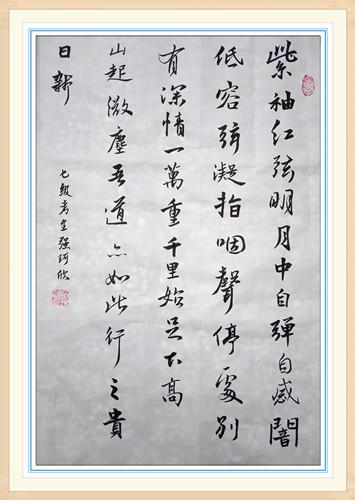 紫袖紅弦明月中自彈自感闇
低容弦凝指咽聲停處別
有深情一萬重千里始足下高
山起微塵吾道亦如此行之貴
日新
七級考生强珂欣